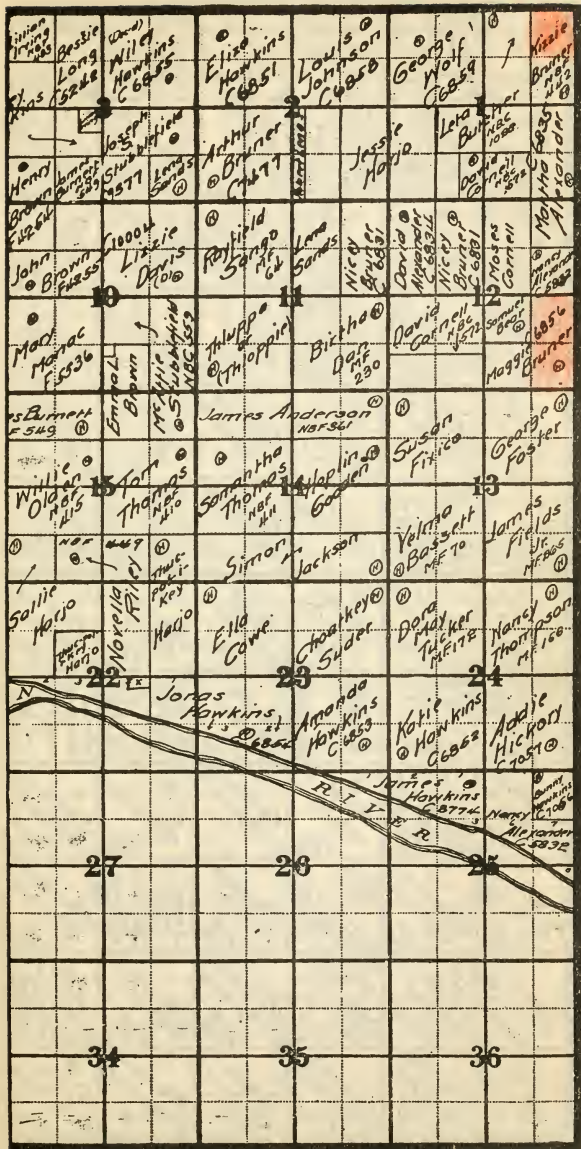 Lillian
Irving
NBF
Bessie
Long
C 5242
(Dec'd)
Wiley
Hawkins
C 6855
Eliza
Hawkins
C 6851
Louis
Johnson
C 6858
George
Wolf
C 6859
H
Kizzie
Bruner
NBF
H
3
2
1
Joseph
S.
Stubblefield
9377
Lena
Sands
H
Arthur
Bruner
C 7477
Jessie
Harjo
Lena
Butcher
NBC
1088
David
Cornell
NBC
572
Martha
Alexander
C 6835
Henry
Brown
F 4264
James
Burnett
John
Brown
F 4255
C 10004
Lizzie
Davis
(D)
H
Rayfield
Sango
MF
64
Lena
Sands
Nicey
Bruner
C 6831
David
Alexander
C 6834
Nicey
Bruner
C 6831
Moses
Cornell
Nancy
Alexander
C 5832
10
11
12
Mary
Manac
F 5536
Emma L.
Brown
McAttie
Stubblefield
NBC 559
Thluppe
or
(Thloppie)
H
Birtha H
Dan
MF
230
David
Cornell
NBC
572
Samuel
Bear
Maggie
Bruner
6856
es Burnett
F 549 H
James Anderson
NBF 361
H
Susan
Fixico
George
Foster
Willie
Olden
NBF
415
15
Tom
Thomas
NBF
410
Samantha
Thomas
NBF
411
14
Heplin
Gooden
13
H
NBF 449
H
Simon
Jackson
H
Velma
Bassett
H MF 70
James
Fields
Jr.
MF 865
Sallie
Harjo
Novella
Riley
Harjo
H
Ella
Cowe
Choarkey
Suder
H
Dora
May
Tucker
MF 178
H
Nancy
Thompson
MF 168
Harjo
22
23
24
N
Jonas
Hawkins
H 6854
Amanda
Hawkins
C 6853
H
Katie
Hawkins
H C 6852
Addie
Hickory
C 7057 H
James
Hawkins
C 8774
RIVER
Bunny
Hawkins
Nancy
Alexander
C 5832
27
26
25
34
35
36